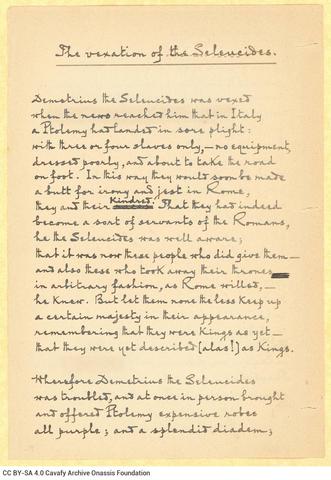 The vexation of the Seleucides.
Demetrius the Seleucides was vexed
when the news reached him that in Italy
a Ptolemy had landed in sore plight:
with three or four slaves only,—no equipment,
dressed poorly, and about to take the road
on foot. In this way they would soon be made
a butt for irony and jest in Rome,
they and their Kindred. That they had indeed
become a sort of servants of the Romans,
he the Seleucides was well aware;
that it was now these people who did give them—
and also these who took away their thrones
in arbitrary fashion, as Rome willed,—
he knew. But let them none the less keep up
a certain majesty in their appearance,
remembering that they were Kings as yet—
that they were yet described (alas!) as Kings.
Wherefore Demetrius the Seleucides
was troubled, and at once in person brought
and offered Ptolemy expensive robes
all purple; and a splendid diadem;
CC BY-SA 4.0 Cavafy Archive Onassis Foundation